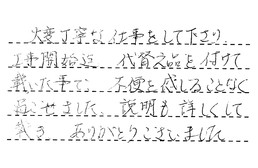 大変丁寧な仕事をして下さり、
工事開始迄 代替え品を付けて
戴いた事で 不便を感じることなく
過ごせました。説明も詳しくして
戴き ありがとうございました